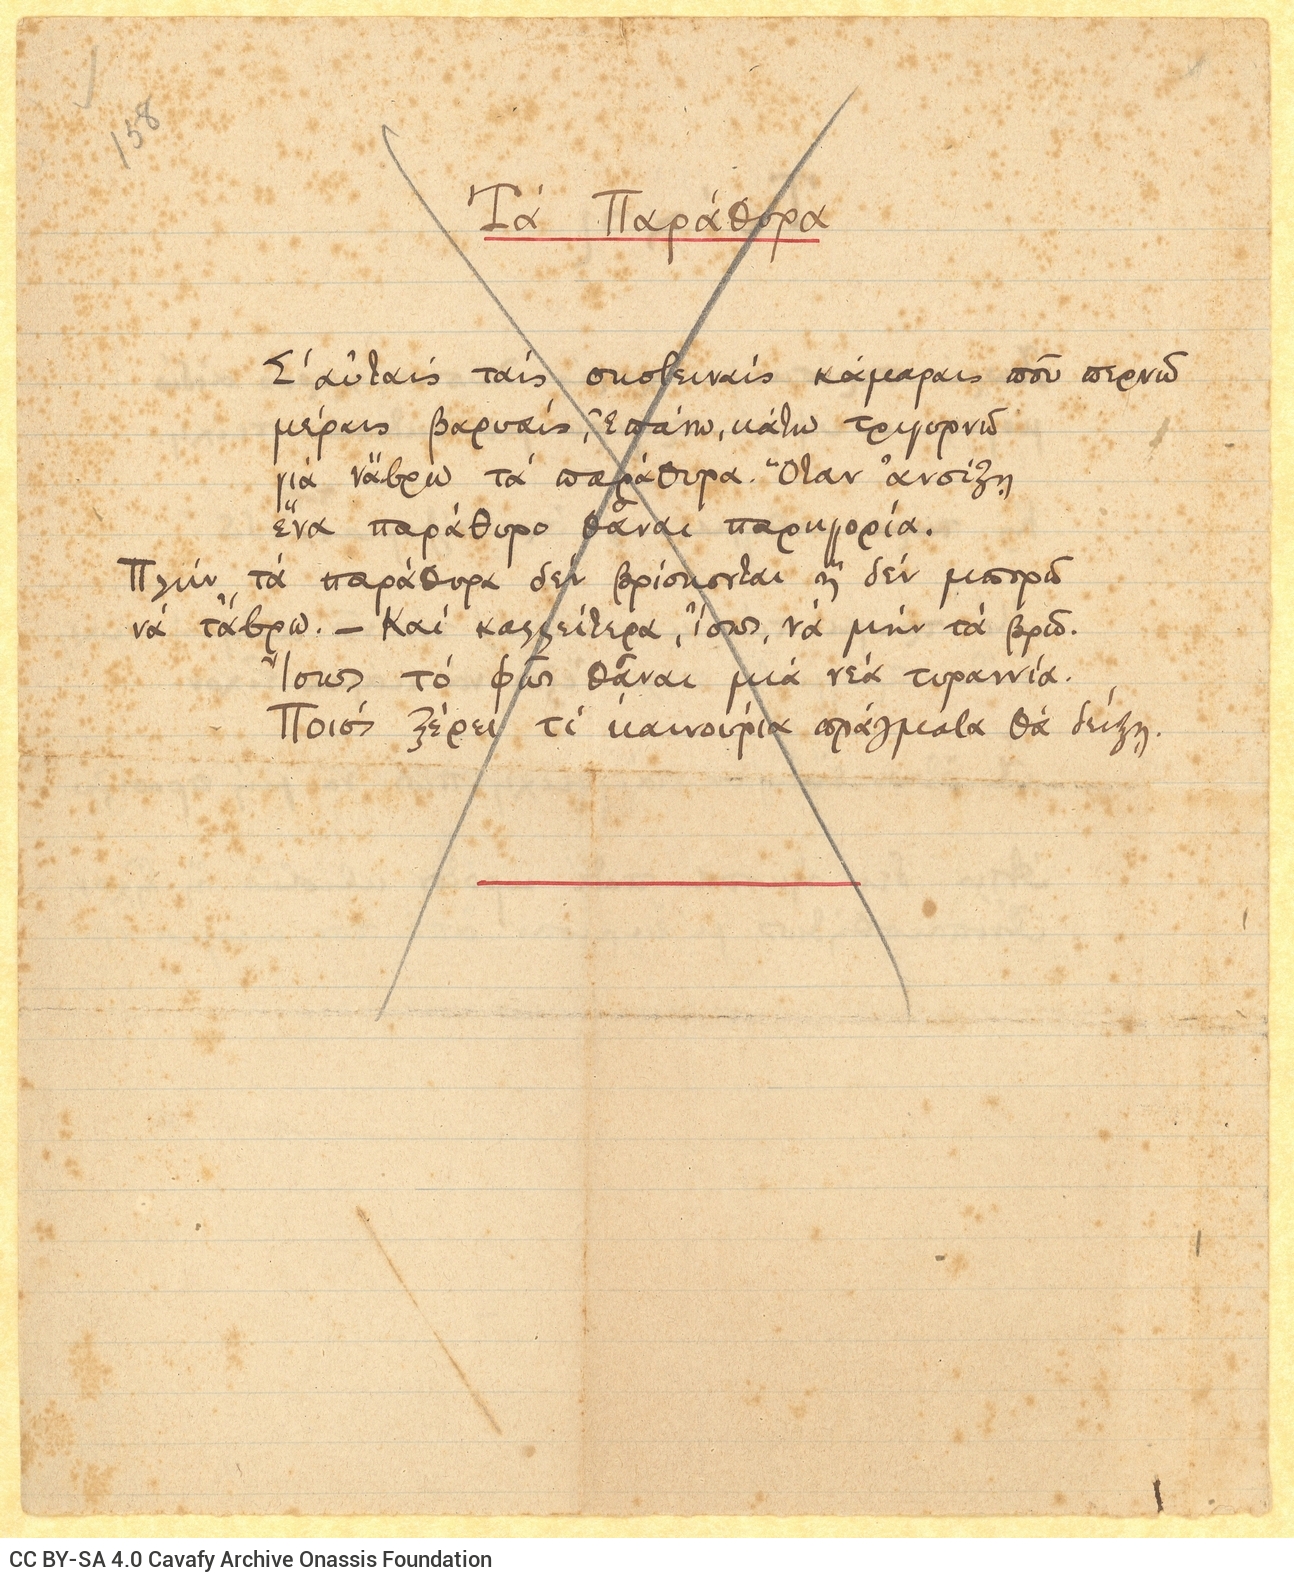 158
Τά Παράθυρα
Σ' αὐταίς ταίς σκοτειναίς κάμαραις ποῦ περνῶ
μέραις βαρυαίς, ἐπάνω, κάτω τριγυρνῶ
γιά νἄβρω τά παράθυρα. Ὅταν ἀνοίξῃ
ἕνα παράθυρο θἆναι παρηγορία.
Πλήν τά παράθυρα δέν βρίσκονται ἤ δέν μπορῶ
νά τἄβρω. — Καί καλλείτερα, ἴσως, νά μήν τά βρῶ.
Ἴσως τό φῶς θἆναι μιά νέα τυραννία.
Ποιός ξέρει τί καινούρια πράγματα θά δείξῃ.
CC BY-SA 4.0 Cavafy Archive Onassis Foundation